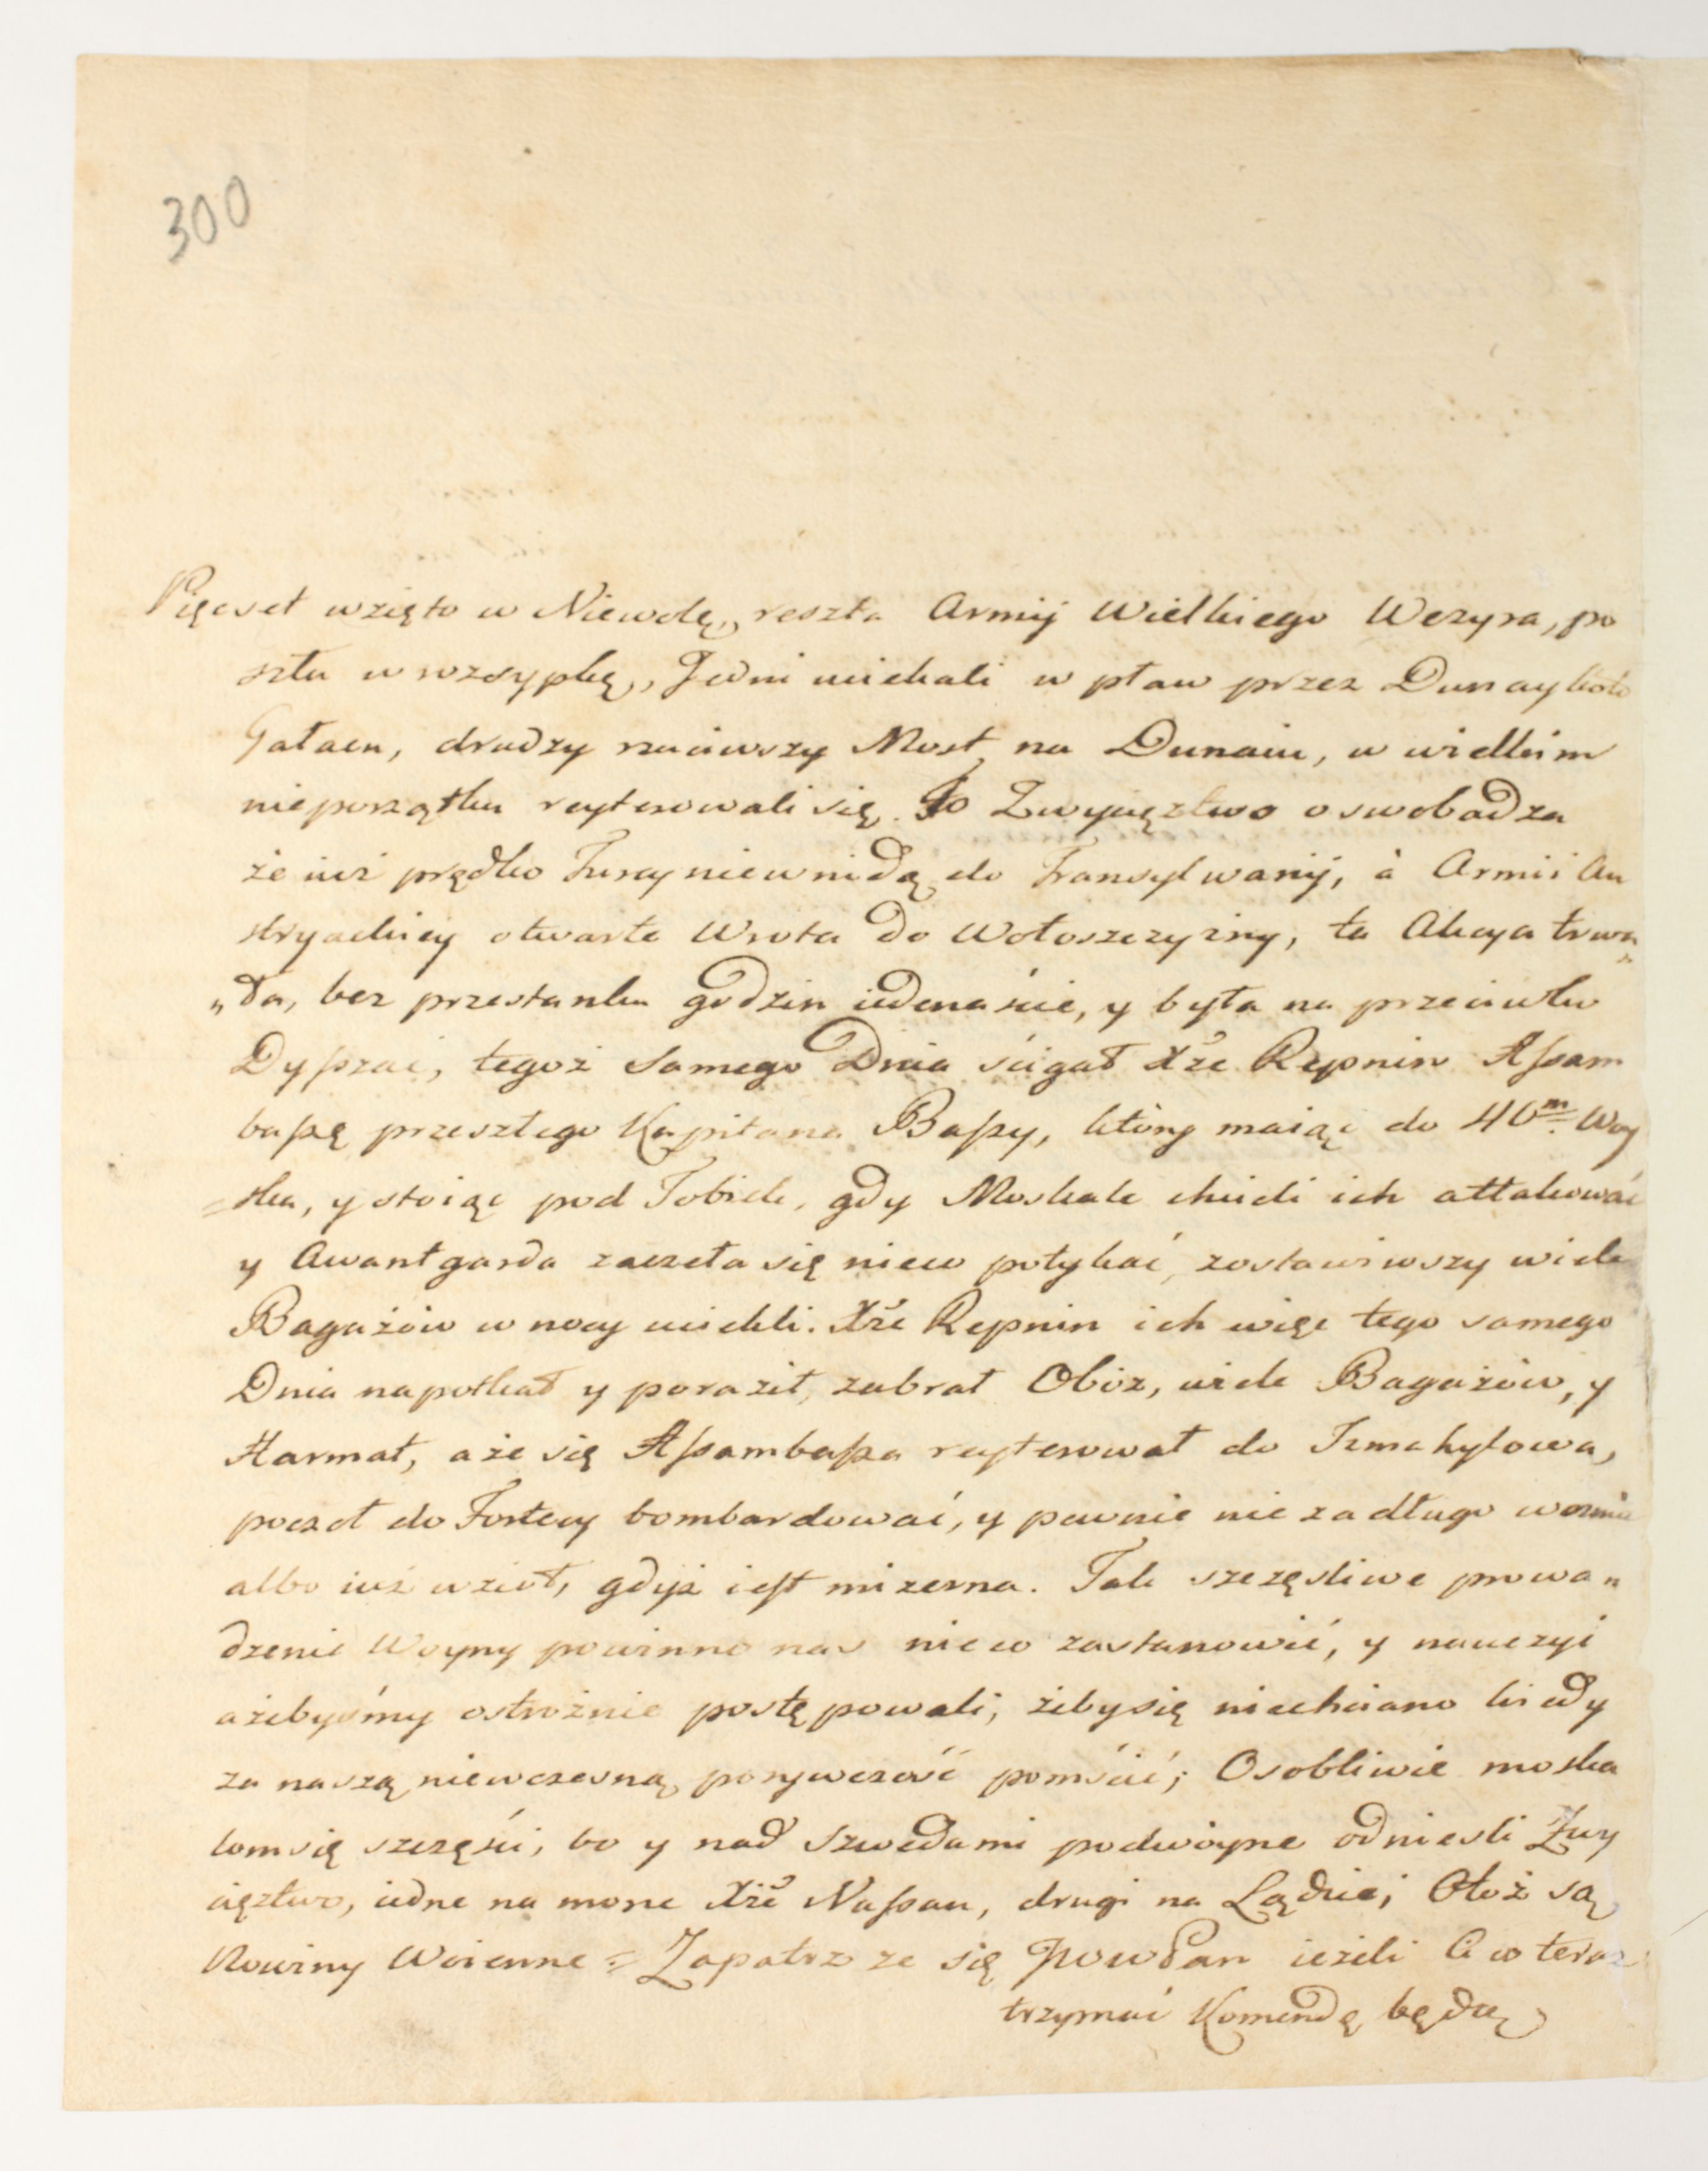 300
Pięcset wzięto w Niewolę, reszta Armij Wielkiego Wezyra, po
szła w rozsypkę, Jedni uiekali w pław przez Dunay koło
Gałacu, drudzy rzuciwszy Most na Dunaiu, w wielkim
nieporządku reyterowali się. To Zwycięztwo oswobadza
że iuż prędko Turcy niewnidą do Transylwanij, à Armii Au
stryackiey otwarte Wrota do Wołoszczyzny, ta Akcya trwa„
„ła, bez przestanku godzin iedenaście, y była na przeciwku
Dyszaci, tegoż Samego Dnia ścigał Xże Repnin Assam
baszę przeszłego Kapitana Baszy, który maiąc do 40m. Woy
=ska, y stoiąc pod Tobick, gdy Moskale chcieli ich attakować
y Awantgarda zaczeła się nieco potykać, zostawiwszy wiele
Bagażów w nocy uciekli. Xże Repnin ich więc tego samego
Dnia napotkał y poraził, zabrał Oboz, wiele Bagażów, y
Harmat, a że się Assambasza reyterował do Izmahyłowa,
poczoł do Fortecy bombardować, y pewnie nie zadługo wezmie
albo iuż wzioł, gdyż iest mizerna. Tak szczęsliwe prowa„
dzenie Woyny powinno nas nieco zastanowić, y nauczyć
ażebyśmy ostrożnie postępowali, żeby się niechciano kiedy
za naszą niewczesną porywczość pomścić; Osobliwie moska
lom się szczęści, bo y nad Szwedami podwóyne odniesli Zwy
cięztwo, iedne na morze Xże Nassau, drugi na Lądzie; Otoż są
Nowiny Woienne = Zapatrz ze się Pan ieżeli Co teraz
trzymać Komendę będą